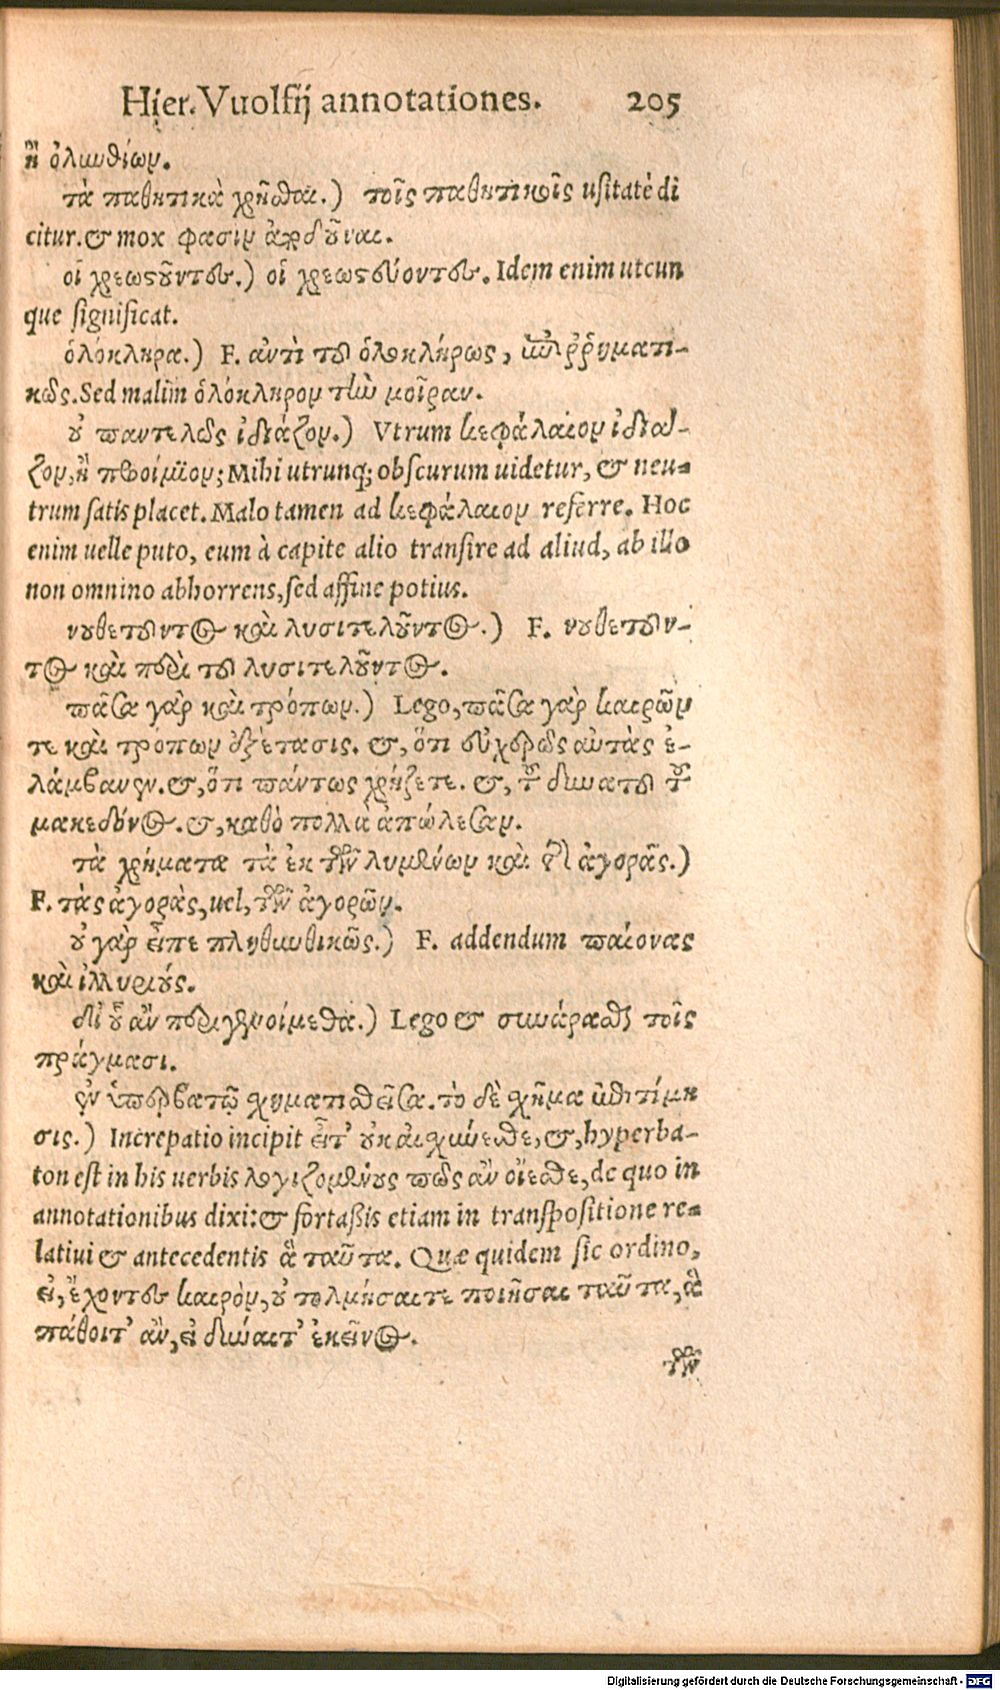 Hier. Vuolfij annotationes. 205
ἢ ὀλυνθίων.
τὰ παθητικὰ χρῆσθαι.) τοῖς παθητικοῖς usitatè di
citur. & mox φασὶν ἀρδοῦναι.
οἱ χρεωστοῦντες.) οἱ χρεωστεύοντες. Idem enim utcun
que significat.
ὁλόκληρα.) F. ἀντὶ τοῦ ὁλοκλήρως, ἐπιῤῥηματι-
κῶς. Sed malim ὁλόκληρον τὴν μοῖραν.
οὐ παντελῶς ἰδιάζον.) Vtrum κεφάλαιον ἰδιά-
ζον, ἢ προοίμιον; Mihi utrunq; obscurum uidetur, & neu-
trum satis placet. Malo tamen ad κεφάλαιον referre. Hoc
enim uelle puto, eum à capite alio transire ad aliud, ab illo
non omnino abhorrens, sed affine potius.
νουθετοῦντος καὶ λυσιτελοῦντος.) F. νουθετοῦν-
τος καὶ περὶ τοῦ λυσιτελοῦντος.
πᾶσα γὰρ καὶ τρόπων.) Lego, πᾶσα γὰρ καιρῶν
τε καὶ τρόπων ἐξέτασις. &, ὅτι εὐχερῶς αὐτὰς ἐ-
λάμβανεν. &, ὅτι πάντως χρήζετε. &, τοῦ δυνατοῦ τοῦ
μακεδόνος. &, καθὸ πολλὰ ἀπώλεσαν.
τὰ χρήματα τὰ ἐκ τῶν λυμένων καὶ τῆς ἀγορᾶς.)
F. τὰς ἀγορὰς, uel, τῶν ἀγορῶν.
οὐ γὰρ εἶπε πληθυνθικῶς.) F. addendum παίονας
καὶ ἰλλυριούς.
δι' οὗ ἂν περιγενοίμεθα.) Lego & συνάρασθαι τοῖς
πράγμασι.
ἐν ὑπερβατῷ σχηματισθεῖσα. τὸ δὲ σχῆμα ἐπιτίμη
σις.) Increpatio incipit εἶτ' οὐκ αἰσχύνεσθε, &, hyperba-
ton est in his uerbis λογιζομένους πῶς ἂν οἴεσθε, de quo in
annotationibus dixi: & fortaßis etiam in transpositione re-
latiui & antecedentis ἃ ταῦτα. Quæ quidem sic ordino,
εἰ, ἔχοντες καιρὸν, οὐ τολμήσαιτε ποιῆσαι ταῦτα, ἃ
πάθοιτ' ἂν, εἰ δύναιτ' ἐκεῖνος.
τῶν
Digitalisierung gefördert durch die Deutsche Forschungsgemeinschaft - DFG